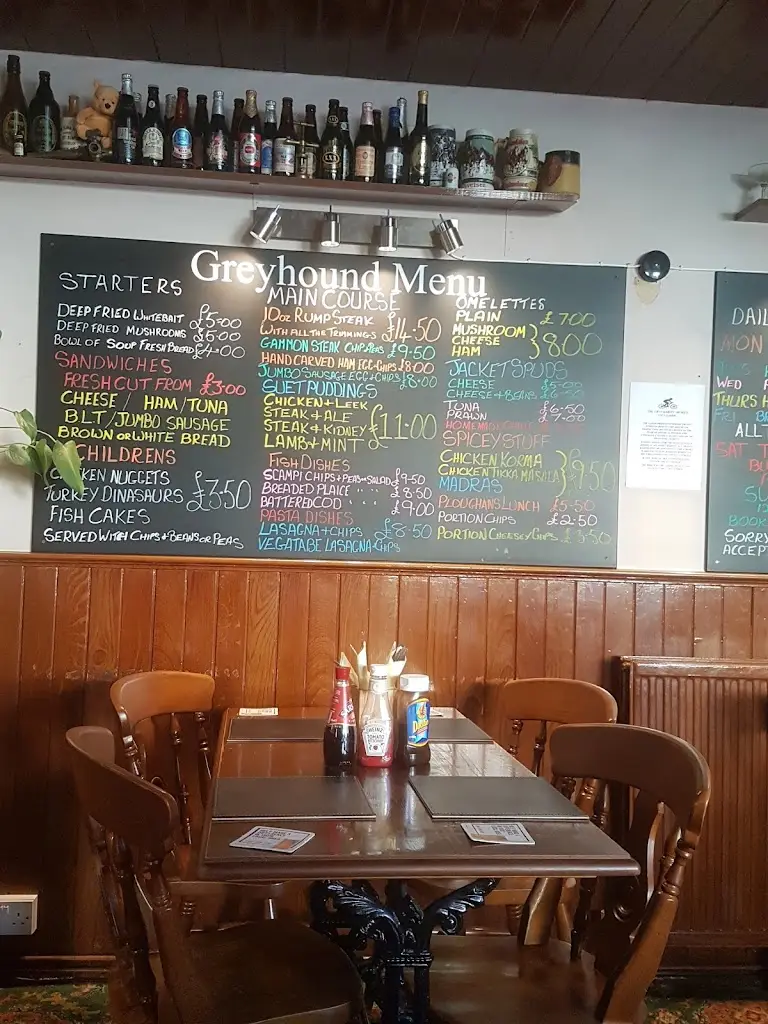 Greyhound Menu
STARTERS
DEEP FRIED WHITEBAIT £5-00
DEEP FRIED MUSHROOMS £5-00
BOWL OF SOUP FRESH BREAD £4-00
SANDWICHES
FRESH CUT FROM £3:00
CHEESE / HAM / TUNA
BLT / JUMBO SAUSAGE
BROWN OR WHITE BREAD
CHILDRENS
CHICKEN NUGGETS
TURKEY DINASAURS £3/50
FISH CAKES
SERVED WITH CHIPS + BEANS OR PEAS
MAIN COURSE
10oz RUMP STEAK
WITH ALL THE TRIMMINGS £14-50
GAMMON STEAK CHIPS PEAS £9-50
HAND CARVED HAM EGG + CHIPS £8:00
JUMBO SAUSAGE EGG + CHIPS £8:00
SUET PUDDINGS
CHICKEN + LEEK
STEAK + ALE
STEAK + KIDNEY £11:00
LAMB + MINT
FISH DISHES
SCAMPI CHIPS + PEAS OR SALAD £9-50
BREADED PLAICE " " £8-50
BATTERED COD " " £9:00
PASTA DISHES
LASAGNA + CHIPS £8-50
VEGATABLE LASAGNA + CHIPS
OMELETTES
PLAIN £7.00
MUSHROOM
CHEESE £8.00
HAM
JACKET SPUDS
CHEESE £5-00
CHEESE + BEANS £6-50
TUNA £6-50
PRAWN £7-00
HOMEMADE
SPICEY STUFF
CHICKEN KORMA
CHICKEN TIKKA MASALA £9/50
MADRAS
PLOUGHANS LUNCH £5-50
PORTION CHIPS £2-50
PORTION CHEESEY CHIPS £3-50
DAIL
MON
WED
THURS
ALL
SAT
BOOK
SORRY
ACCEPT
HEINZ
TOMATO
Daddies